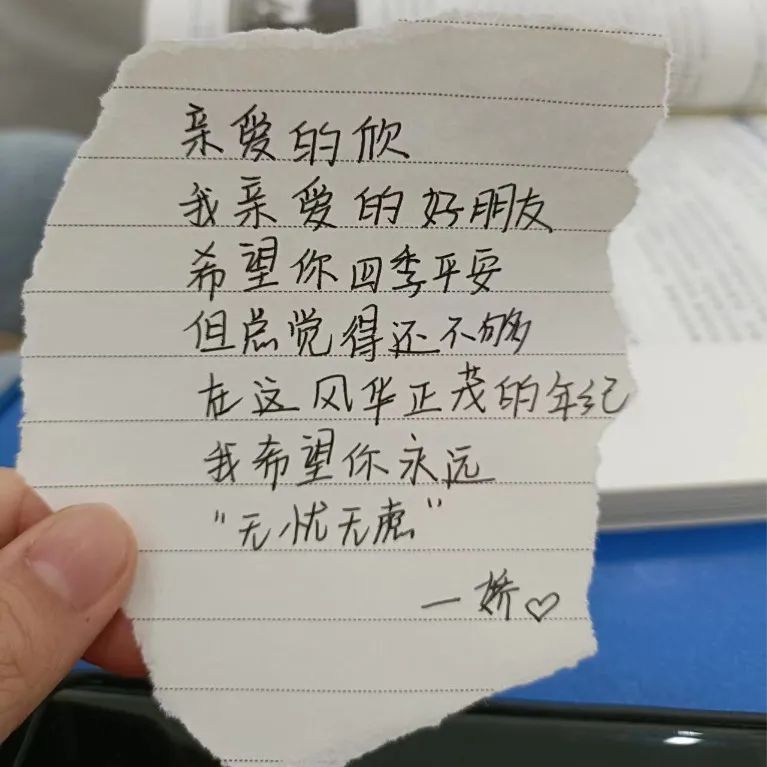 亲爱的欣
我亲爱的好朋友
希望你四季平安
但总觉得还不够
在这风华正茂的年纪
我希望你永远
“无忧无虑”
一娇♡